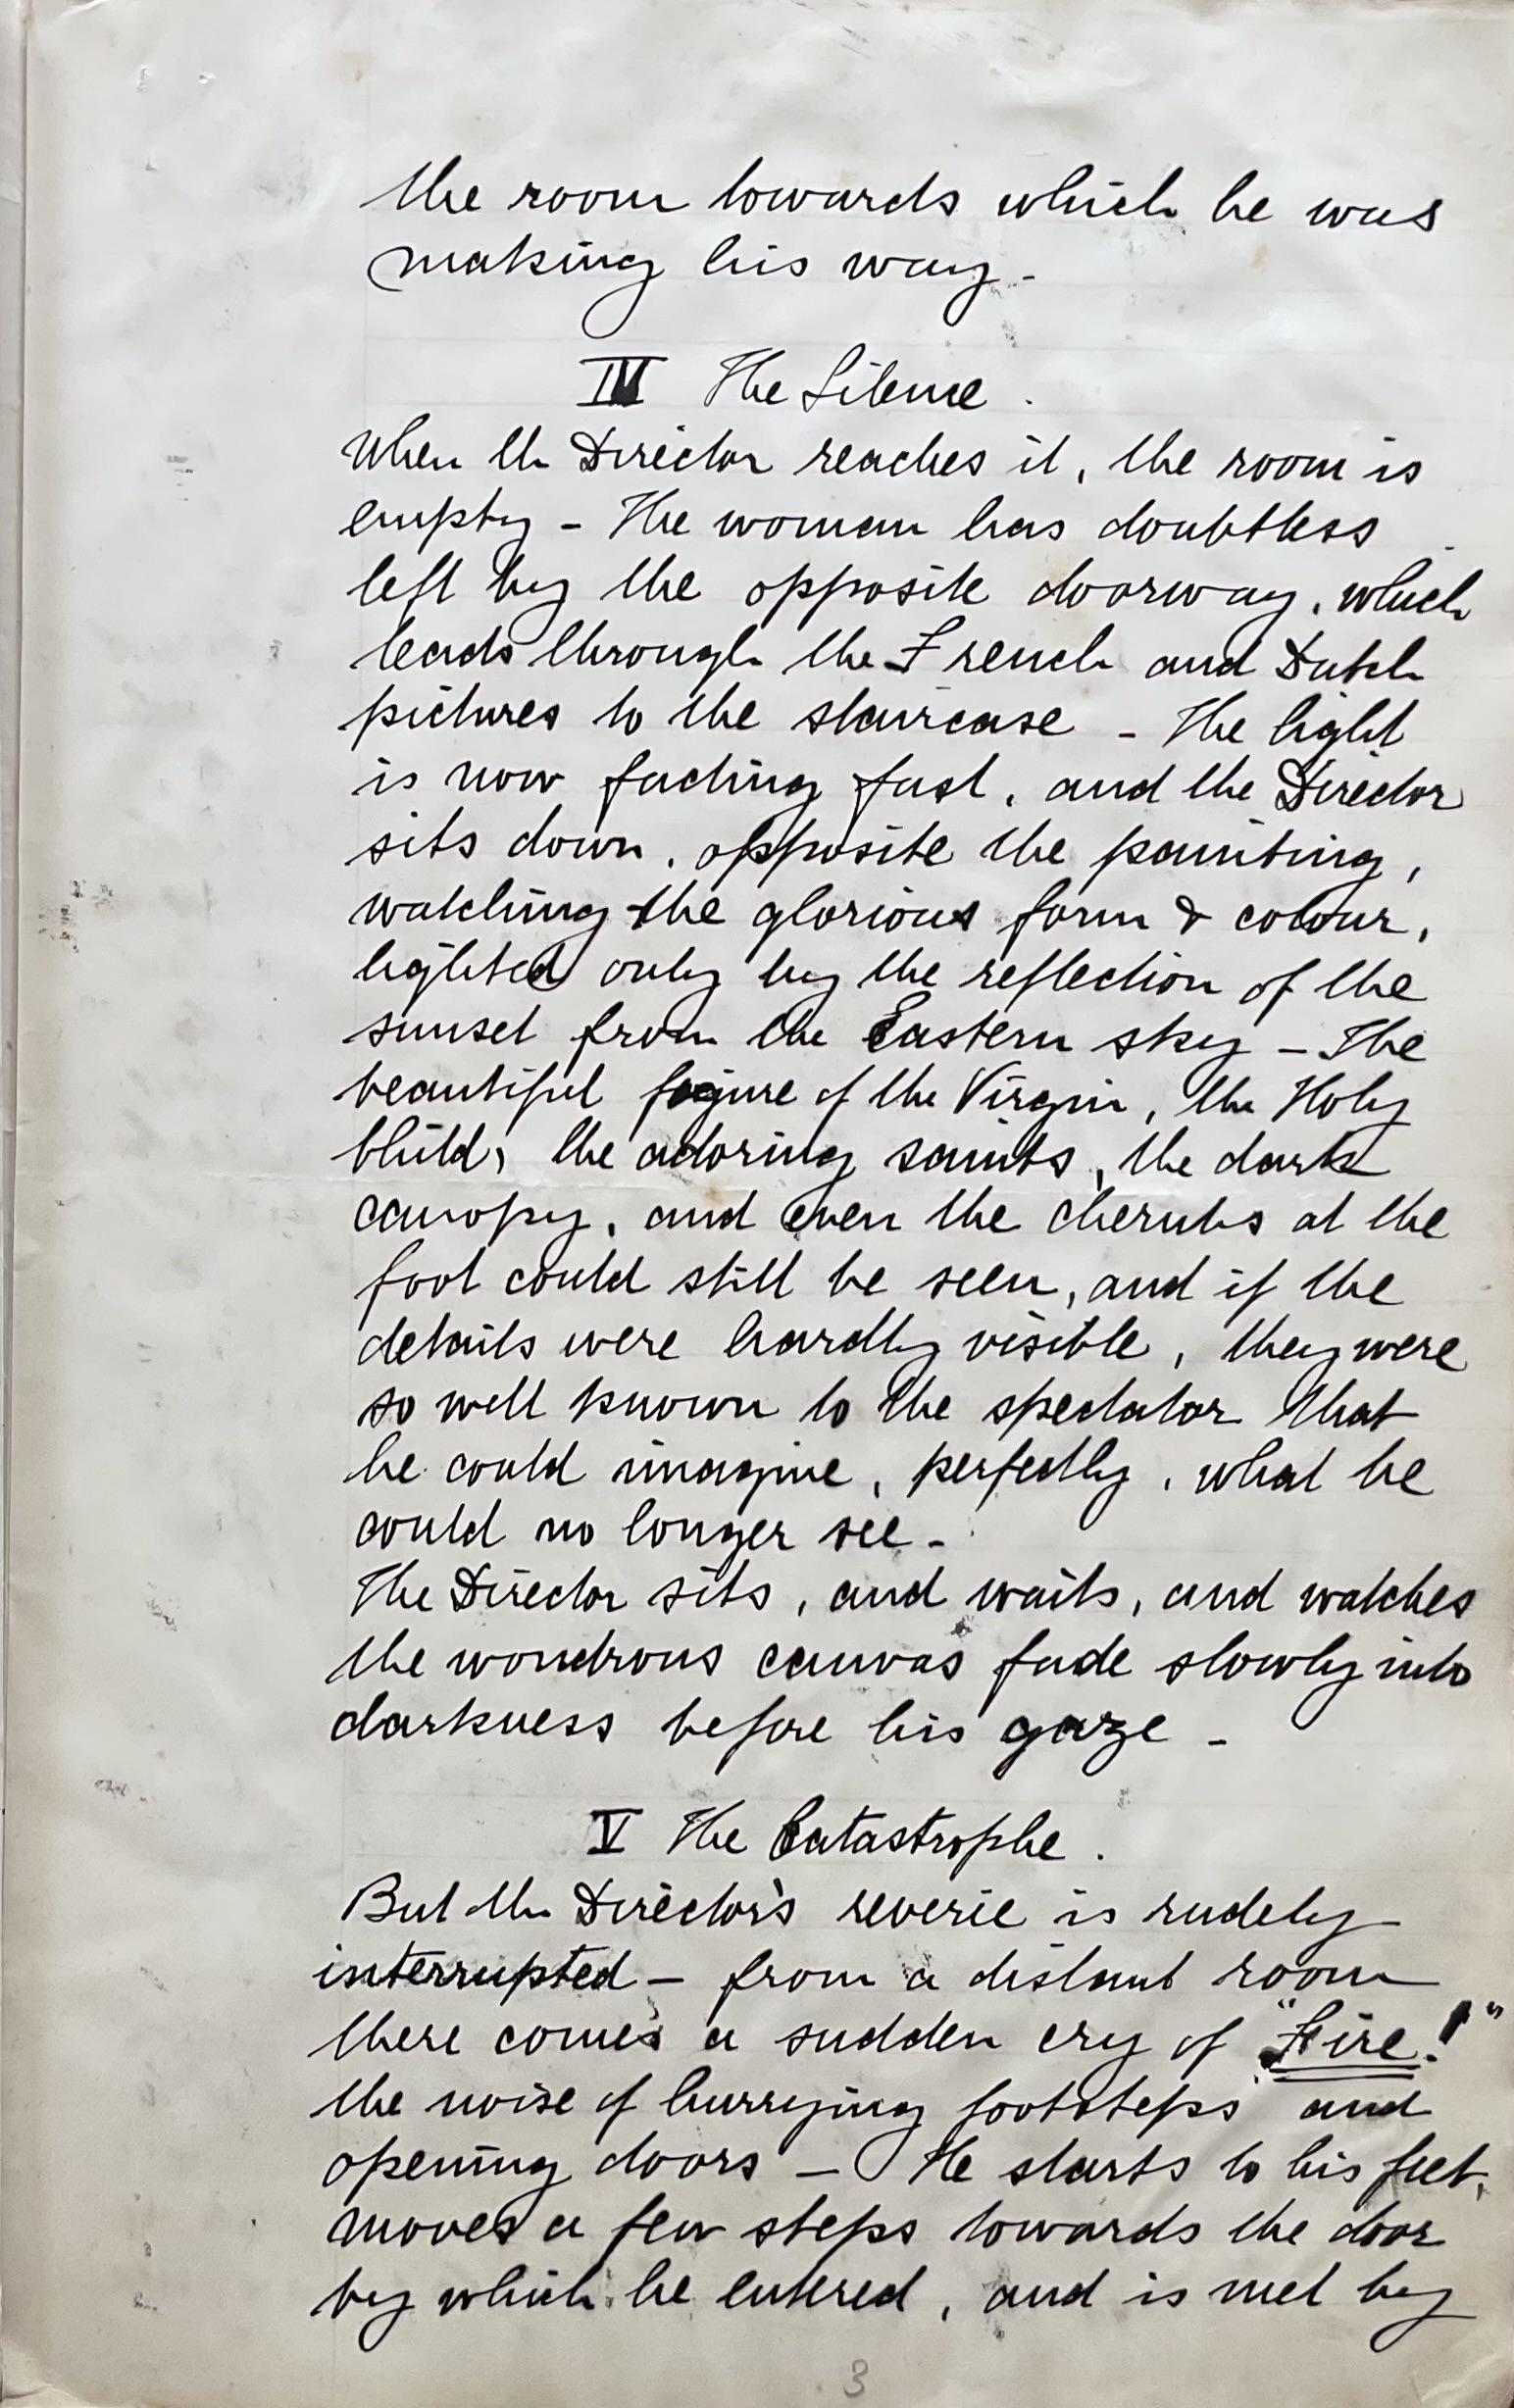 the room towards which he was
making his way -
IV The Silence .
When the Director reaches it, the room is
empty - The woman has doubtless
left by the opposite doorway, which
leads through the French and Dutch
pictures to the staircase - The light
is now fading fast, and the Director
sits down, opposite the painting,
watching the glorious form & colour,
lighted only by the reflection of the
sunset from the Eastern sky - The
beautiful figure of the Virgin, the Holy
Child, the adoring saints, the dark
canopy, and even the cherubs at the
foot could still be seen, and if the
details were hardly visible, they were
so well known to the spectator that
he could imagine, perfectly, what he
could no longer see -
The Director sits, and waits, and watches
the wondrous canvas fade slowly into
darkness before his gaze -
V The Catastrophe .
But the Director's reverie is rudely
interrupted - from a distant room
there comes a sudden cry of "Fire!"
the noise of hurrying footsteps and
opening doors - He starts to his feet,
moves a few steps towards the door
by which he entered, and is met by
3